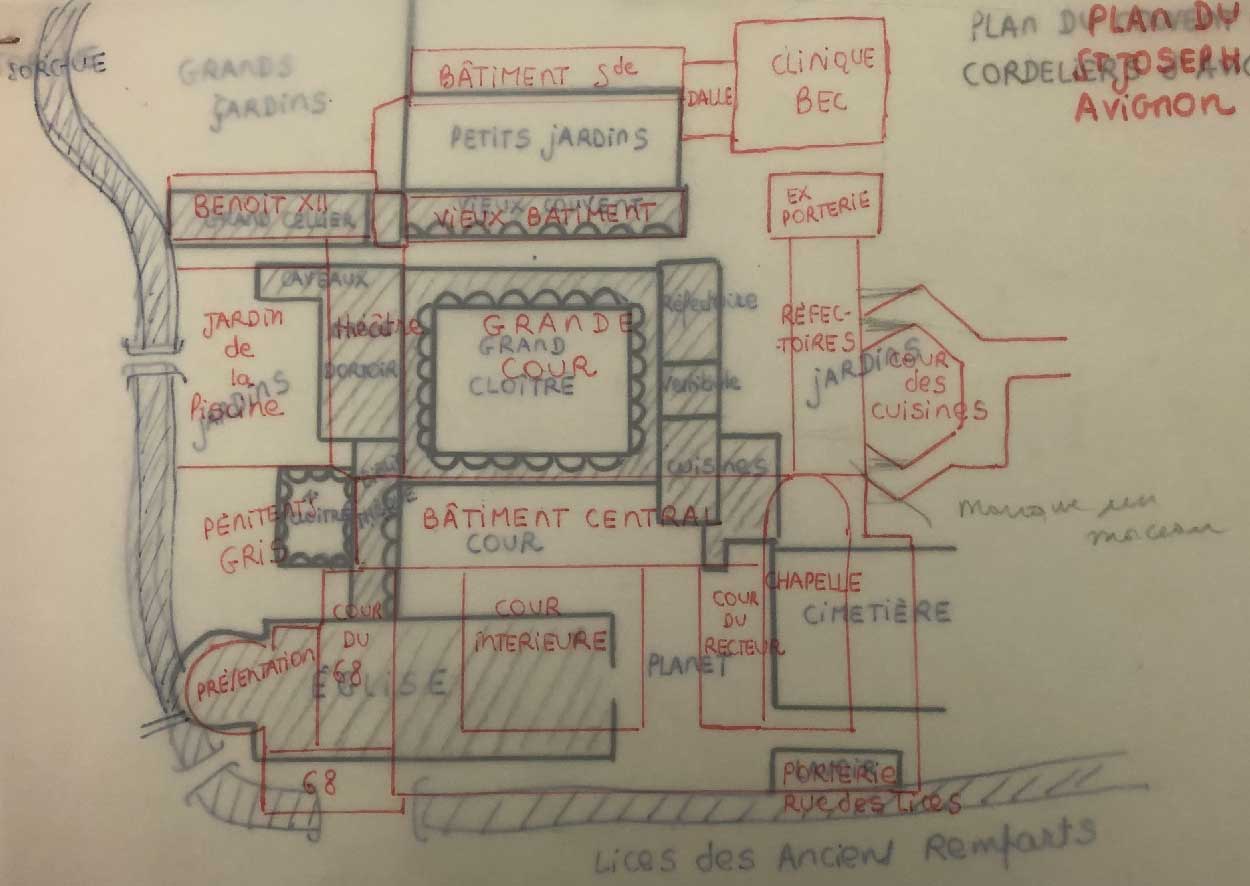 PLAN DU
PLAN DU COUVENT
ST JOSEPH
CORDELIERS
AVIGNON
SORGUE
GRANDS
JARDINS
BÂTIMENT Sde
PETITS JARDINS
DALLE
CLINIQUE
BEC
BENOIT XII
GRAND CELLIER
VIEUX COUVENT
VIEUX BÂTIMENT
EX
PORTERIE
CAVEAUX
JARDIN
de
la
Piscine
JARDINS
théâtre
DORTOIR
GRANDE
COUR
GRAND
CLOÎTRE
Réfectoire
Vestibule
cuisines
RÉFEC-
-TOIRES
JARDINS
COUR
des
CUISINES
Manque un
morceau
PÉNITENTS
GRIS
BÂTIMENT CENTRAL
COUR
COUR
DU
68
COUR
INTERIEURE
COUR
DU
RECTEUR
CHAPELLE
CIMETIÈRE
PRÉSENTATION
ÉGLISE
PLANET
68
PORTERIE
Rue des Lices
Lices des Ancient Remparts